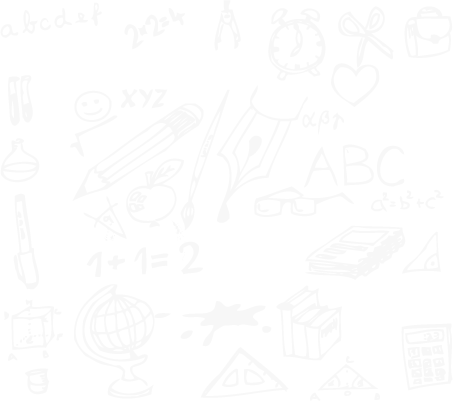 abcdef
2×2=4
XYZ
αβγ
ABC
a²=b²+c²
1+1=2